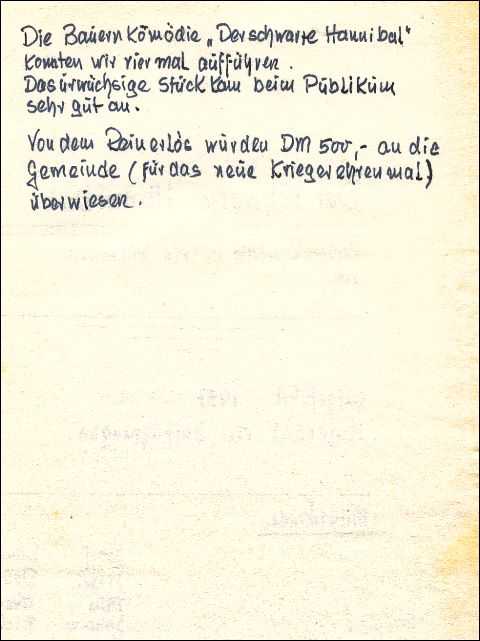 Die Bauernkomödie „Der schwarze Hannibal"
konnten wir vier mal aufführen.
Das urwüchsige Stück kam beim Publikum
sehr gut an.
Von dem Reinerlös wurden DM 500,- an die
Gemeinde (für das neue Kriegerehrenmal)
überwiesen.